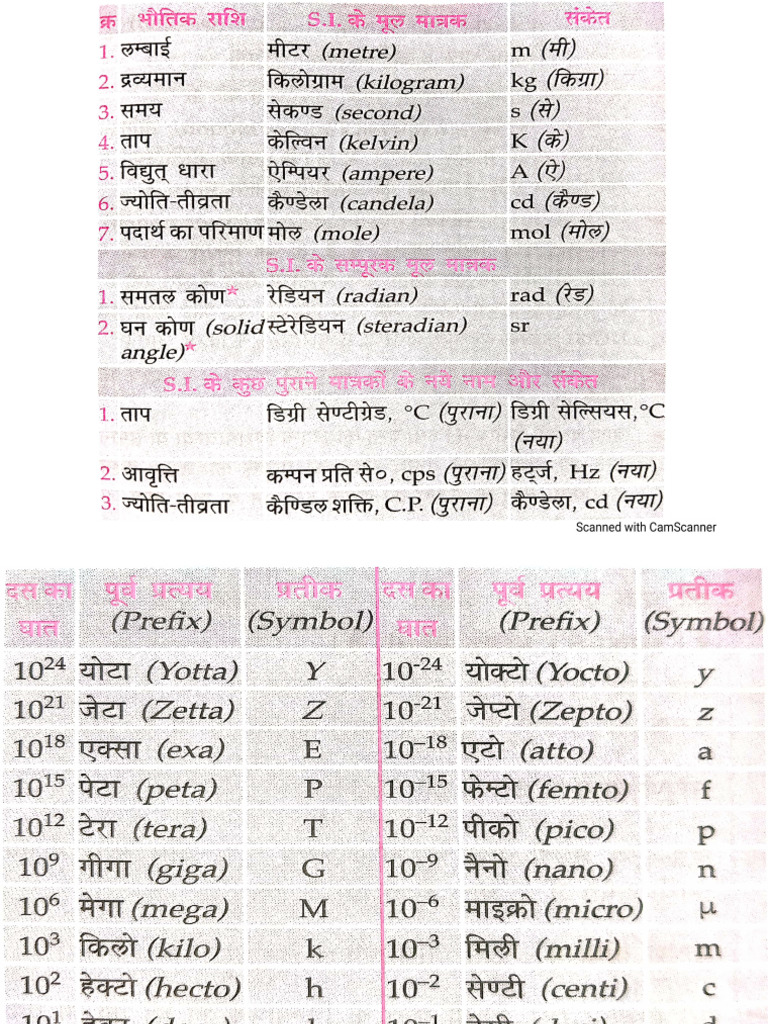 क्र भौतिक राशि S.I. के मूल मात्रक संकेत
1. लम्बाई मीटर (metre) m (मी)
2. द्रव्यमान किलोग्राम (kilogram) kg (किग्रा)
3. समय सेकण्ड (second) s (से)
4. ताप केल्विन (kelvin) K (के)
5. विद्युत् धारा ऐम्पियर (ampere) A (ऐ)
6. ज्योति-तीव्रता कैण्डेला (candela) cd (कैण्ड)
7. पदार्थ का परिमाण मोल (mole) mol (मोल)
S.I. के सम्पूरक मूल मात्रक
1. समतल कोण* रेडियन (radian) rad (रेड)
2. घन कोण (solid स्टेरेडियन (steradian) sr
angle)*
S.I. के कुछ पुराने मात्रकों के नये नाम और संकेत
1. ताप डिग्री सेण्टीग्रेड, °C (पुराना) डिग्री सेल्सियस,°C
(नया)
2. आवृत्ति कम्पन प्रति से०, cps (पुराना) हर्ट्ज, Hz (नया)
3. ज्योति-तीव्रता कैण्डिल शक्ति, C.P. (पुराना) कैण्डेला, cd (नया)
Scanned with CamScanner
दस का पूर्व प्रत्यय प्रतीक दस का पूर्व प्रत्यय प्रतीक
घात (Prefix) (Symbol) घात (Prefix) (Symbol)
10²⁴ योटा (Yotta) Y 10⁻²⁴ योक्टो (Yocto) y
10²¹ जेटा (Zetta) Z 10⁻²¹ जेप्टो (Zepto) z
10¹⁸ एक्सा (exa) E 10⁻¹⁸ एटो (atto) a
10¹⁵ पेटा (peta) P 10⁻¹⁵ फेम्टो (femto) f
10¹² टेरा (tera) T 10⁻¹² पीको (pico) p
10⁹ गीगा (giga) G 10⁻⁹ नैनो (nano) n
10⁶ मेगा (mega) M 10⁻⁶ माइक्रो (micro) μ
10³ किलो (kilo) k 10⁻³ मिली (milli) m
10² हेक्टो (hecto) h 10⁻² सेण्टी (centi) c
10¹ 10⁻¹